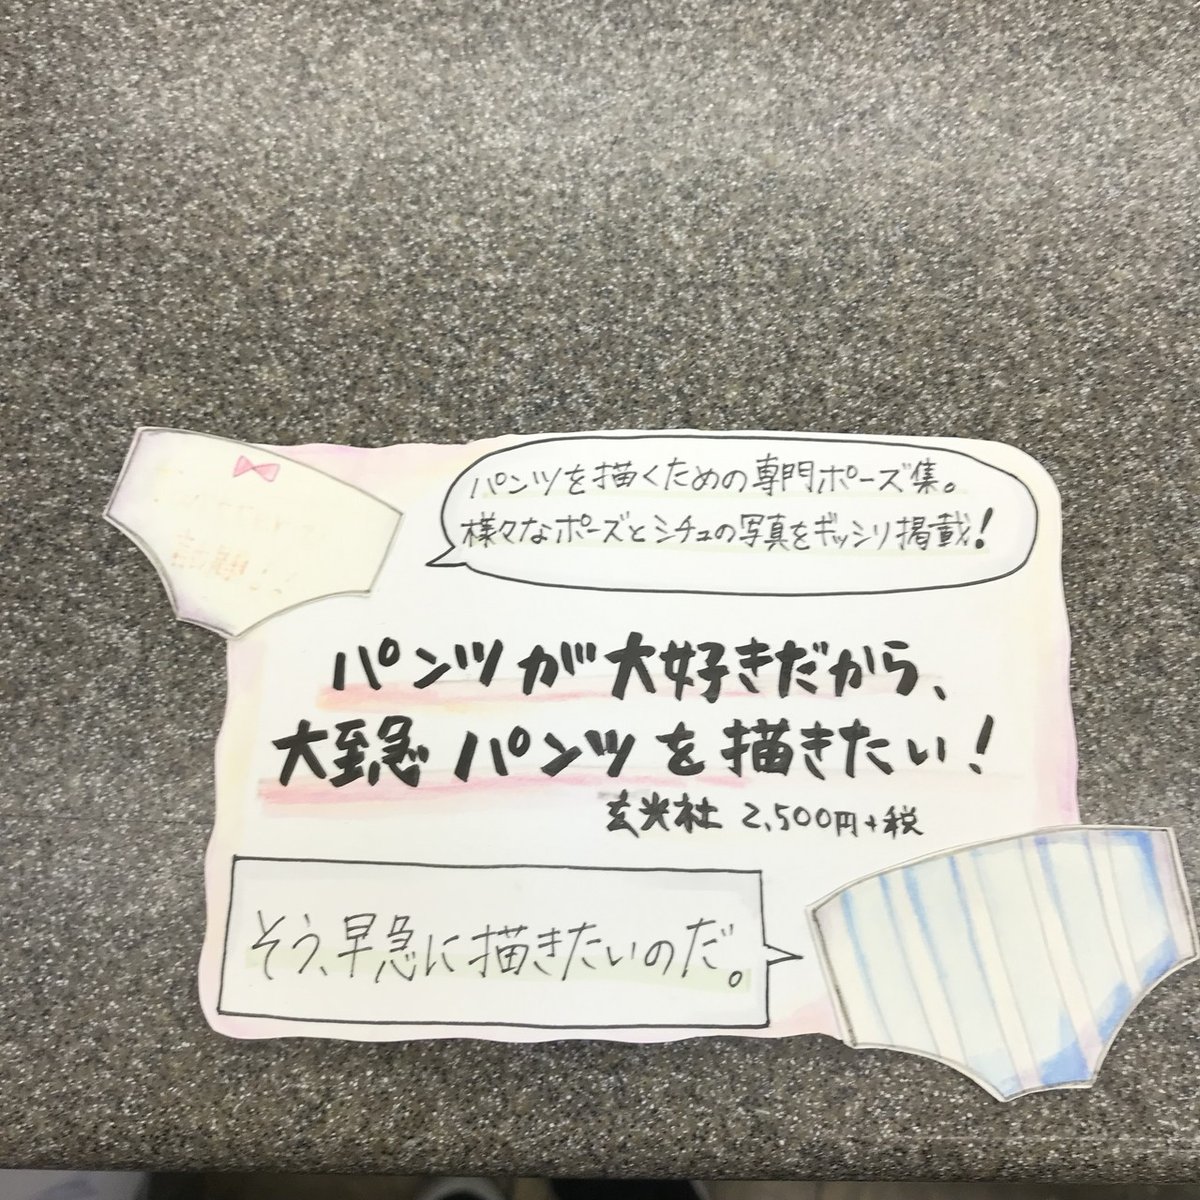 パンツを描くための専門ポーズ集。
様々なポーズとシチュの写真をギッシリ掲載!
パンツが大好きだから、
大至急パンツを描きたい!
玄光社 2,500円+税
そう、早急に描きたいのだ。